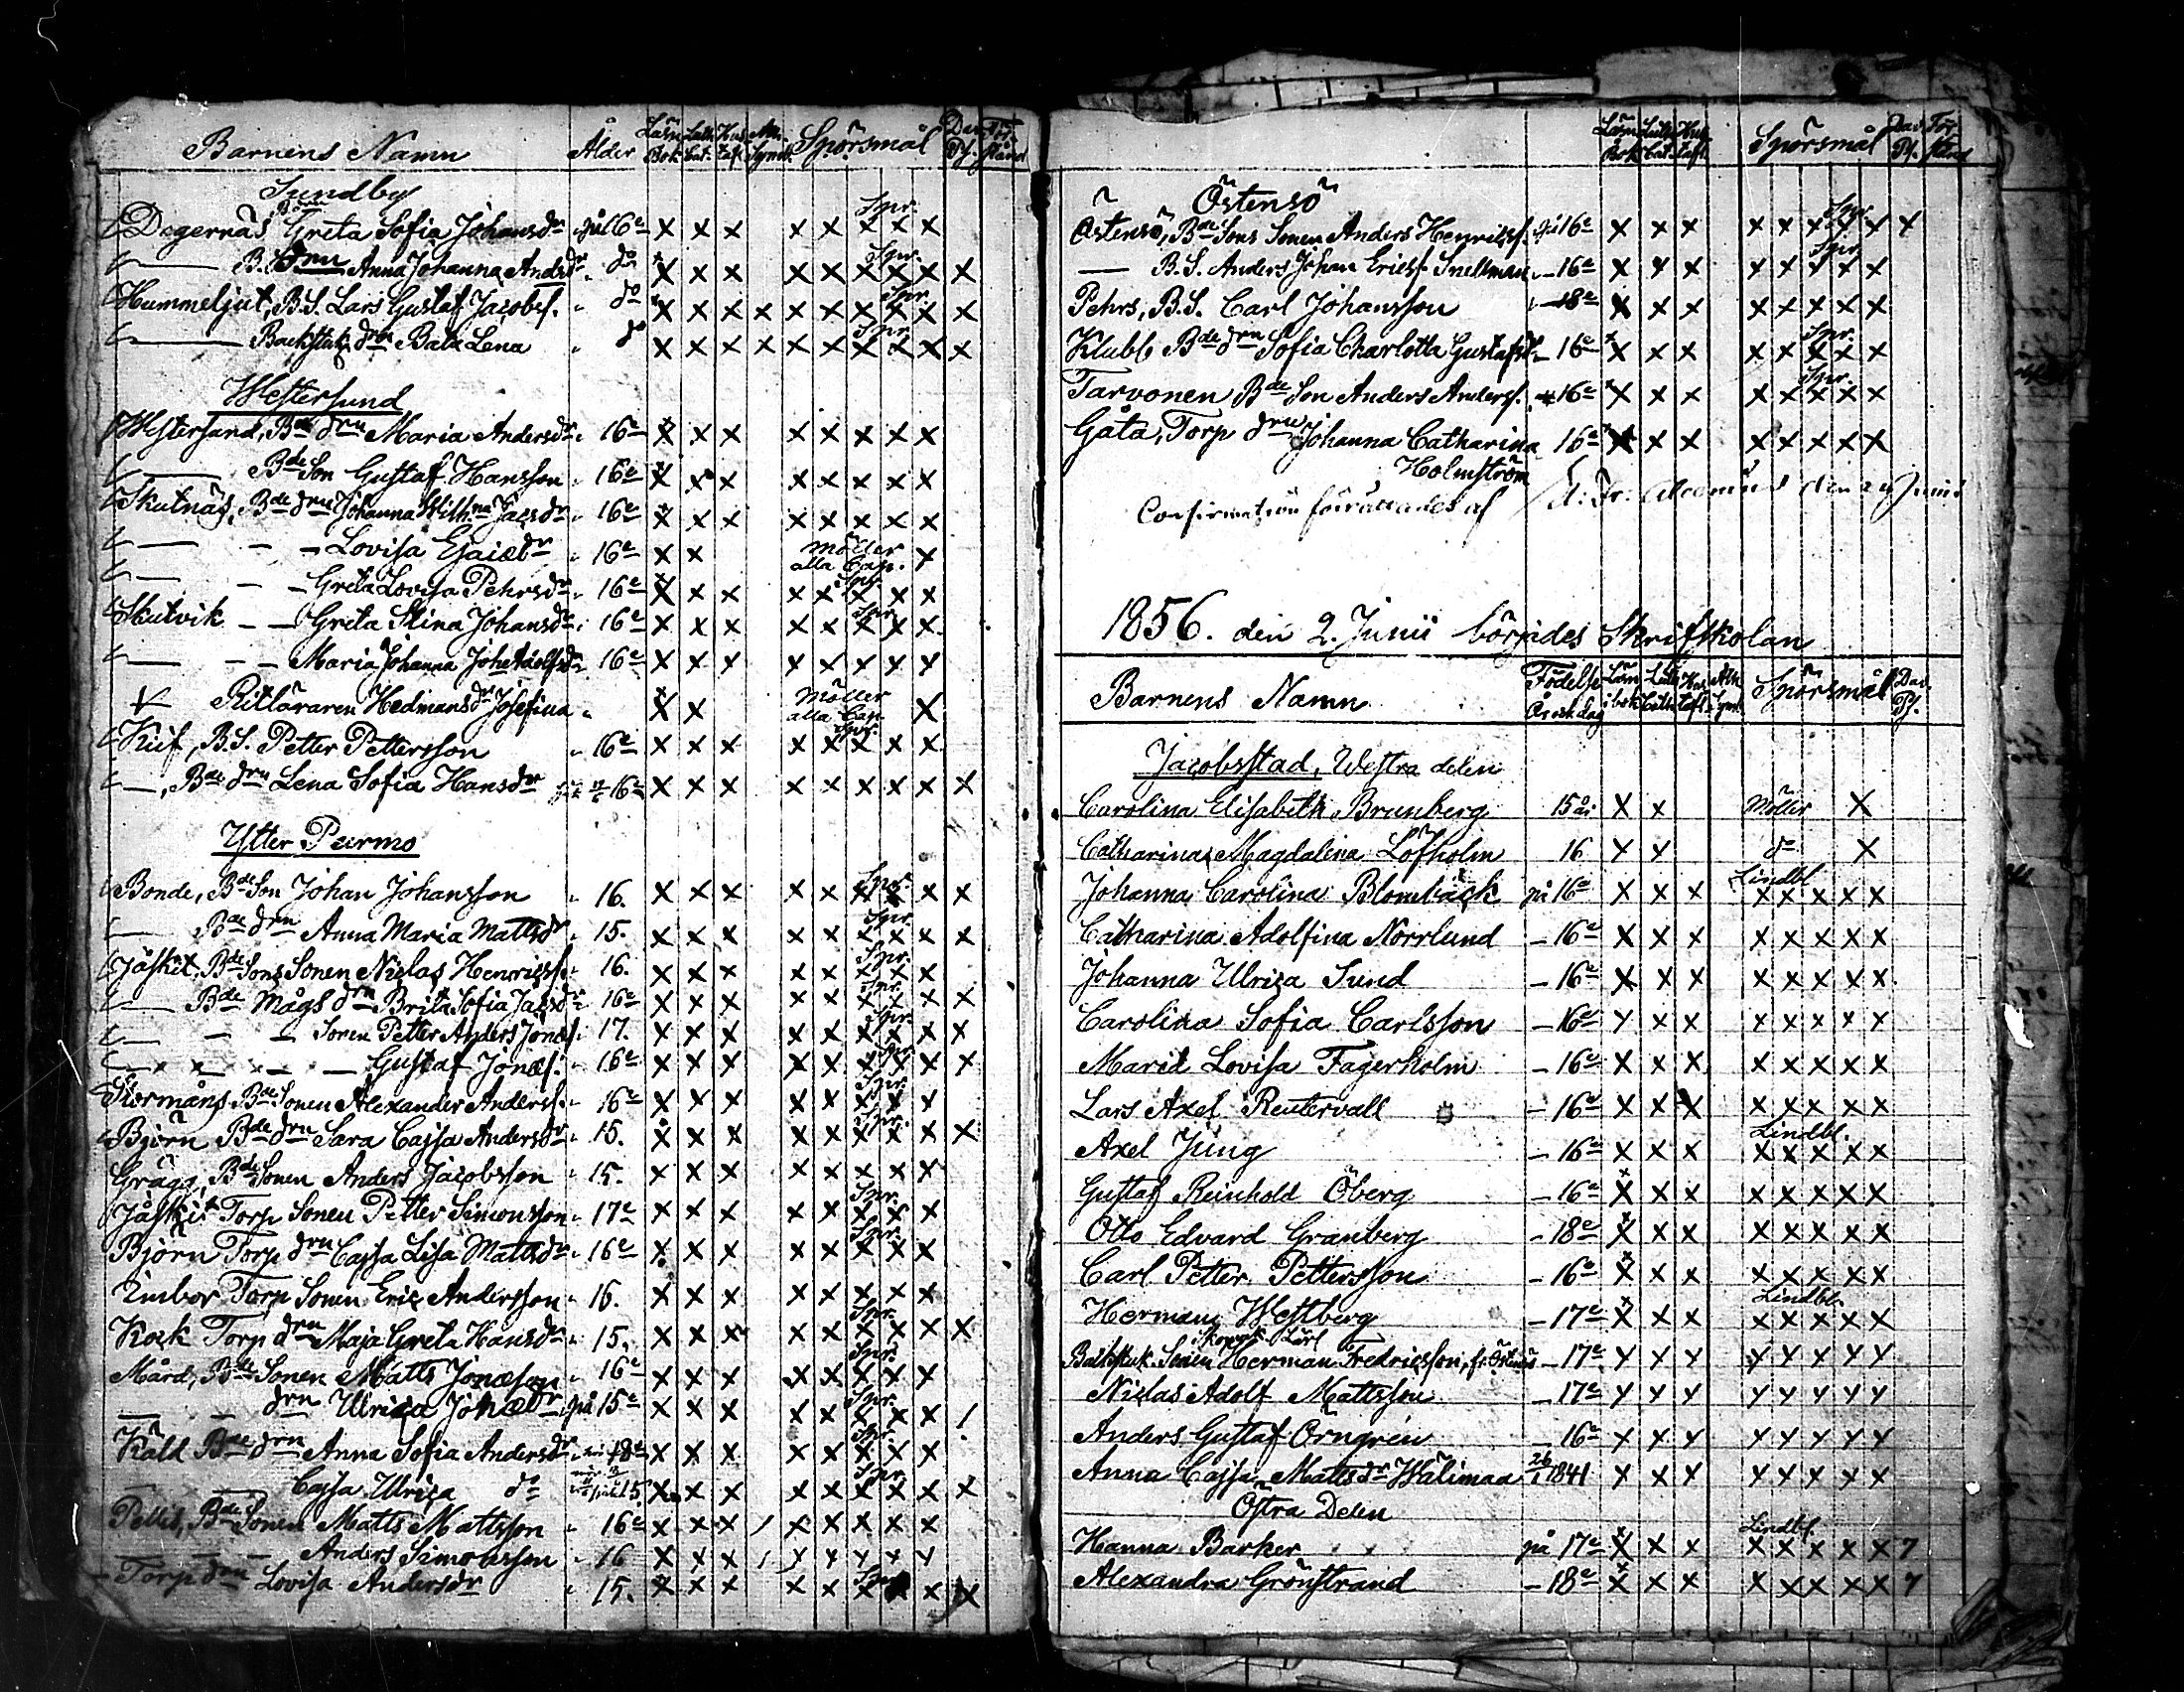 Barnens Namn Ålder Läsn Bok Luth. Cat. Hus taf. Ath. Symb. Spörsmål Dav. Ps. För stånd
Sundby
Degernäs, Greta Sofia Johansdr på 16e x x x x x Spr. x x x
— B. drn Anna Johanna Andersdr do x x x x x Spr. x x x x
Hummeljut, B.S. Lars Gustaf Jacobss. do x x x x x x Spr. x x x x
— Backstu. drn Bata Lena do x x x x x x Spr. x x x x
Westersund
Westersund, Bde drn Maria Andersdr 16e x x x x x x x x
— Bde Son Gustaf Hansson 16e x x x x x x x x
Skutnäs, Bde drn Johanna Wilh.na Jacsdr 16e x x x x x x x x
— — — Lovisa 16e x x Möller alla Cap. x
— — — Greta Lovisa Pehrsdr 16e x x x x x Spr. x x x
Skutvik — — Greta Stina Johansdr 16e x x x x x Spr. x x x
— — — Maria Johanna Joh. Adolfsdr 16e x x x x x x x x
Ritläraren Hedmans dr Josefina x x Möller alla Cap. x
Kief, B.S. Petter Pettersson 16e x x x x x Spr. x x x
—, Bde drn Lena Sofia Hansdr 16e x x x x x x x x x
Ytter Purmo
Bonde, Bde Son Johan Johansson 16. x x x x x Spr. x x x x
— Bde drn Anna Maria Mattsdr 15. x x x x x Spr. x x x x
Jåskit, Bde Sons Sonen Niclas Henricss. 16. x x x x x Spr. x x
— Bde Mågs drn Brita Sofia Jacsdr 16e x x x x x Spr. x x x x
— — — Sonen Petter Anders Jonæs. 17. x x x x x Spr. x x x x
— — — Gustaf Jonæs. 16e x x x x x Spr. x x x x
Bde Sonen Alexander Anderss. 16e x x x x x Spr. x x x
Björn Bde drn Sara Cajsa Andersdr 15. x x x x x Spr. x x x x
Grägg, Bde Sonen Anders Jacobsson 15. x x x x x x x x
Jåskit Torp Sonen Petter Simonsson 17e x x x x x Spr. x x x
Björn Torp drn Cajsa Lisa Mattsdr 16e x x x x x Spr. x x x
Embor Torp Sonen Eric Andersson 16. x x x x x x x x
Kock Torp drn Maja Greta Hansdr 15. x x x x x Spr. x x x x
Mård, Bde Sonen Matts Jonæson 16e x x x x x Spr. x x x
— — drn Ulrica Jonædr på 15e x x x x x Spr. x x x /
Käld Bde drn Anna Sofia Andersdr 18e x x x x x Spr. x x x
— — Cajsa Ulrica do 15. x x x x x Spr. x x x x
Pellis, Bde Sonen Matts Mattsson 16e x x x / x x x x x
— — — Anders Simonsson 16 x x x / x x x x x
— Torp drn Lovisa Andersdr 15. x x x x x Spr. x x x
Läsn Bok Luth Cat. Hus taf. Spörsmål Dav. Ps. För stånd
Östensö
Östensö, Bde Sons Sonen Anders Henricss. på 16e x x x x x Spr. x x x x
— B.S. Anders Johan Ericss. Snellman — 16e x x x x x Spr. x x x
Pehrs, B.S. Carl Johansson — 18e x x x x x x x x
Klubb Bde drn Sofia Charlotta Gustafsdr — 16e x x x x x Spr. x x x
Tarvonen Bde Son Anders Anderss. 16e x x x x x Spr. x x x
Gåta, Torp drn Johanna Catharina Holmström 16e x x x x x x x x
Confirmation förrättades af den 24 Junii
1856. den 2. Junii börjades Skriftskolan
Barnens Namn Födelse År och dag Läsn i bok Luth. Cath. Hus tafl. Ath. Sym. Spörsmål Dav. Ps.
Jacobsstad, Westra delen
Carolina Elisabeth Brunberg 15 år x x Möller x
Catharina Magdalena Löfholm 16 x x do x
Johanna Carolina Blombäck på 16e x x x Lindbl. x x x x x
Catharina Adolfina Norrlund — 16e x x x x x x x x
Johanna Ulrica Sund — 16e x x x x x x x x
Carolina Sofia Carlsson — 16e x x x x x x x x
Maria Lovisa Fagerholm — 16e x x x x x x x x
Lars Axel Reutervall — 16e x x x x x x x x
Axel Jung — 16e x x x Lindbl. x x x x x
Gustaf Reinhold Öberg — 16e x x x x x x x x
Otto Edvard Granberg — 18e x x x x x x x x
Carl Petter Pettersson — 16e x x x x x x x x
Herman Westberg — 17e x x x Lindbl. x x x x x
Backstuk. Sonen Herman Fredricsson, fr. Östensö — 17e x x x x x x x x
Niclas Adolf Mattsson — 17e x x x x x x x x
Anders Gustaf Örngrén 16e x x x x x x x x
Anna Cajsa Mattsdr Wälimaa 26/1 1841 x x x x x x x x
Östra Delen
Hanna Barker på 17e x x x Lindbl. x x x x x 7
Alexandra Grönstrand — 18e x x x x x x x x 7